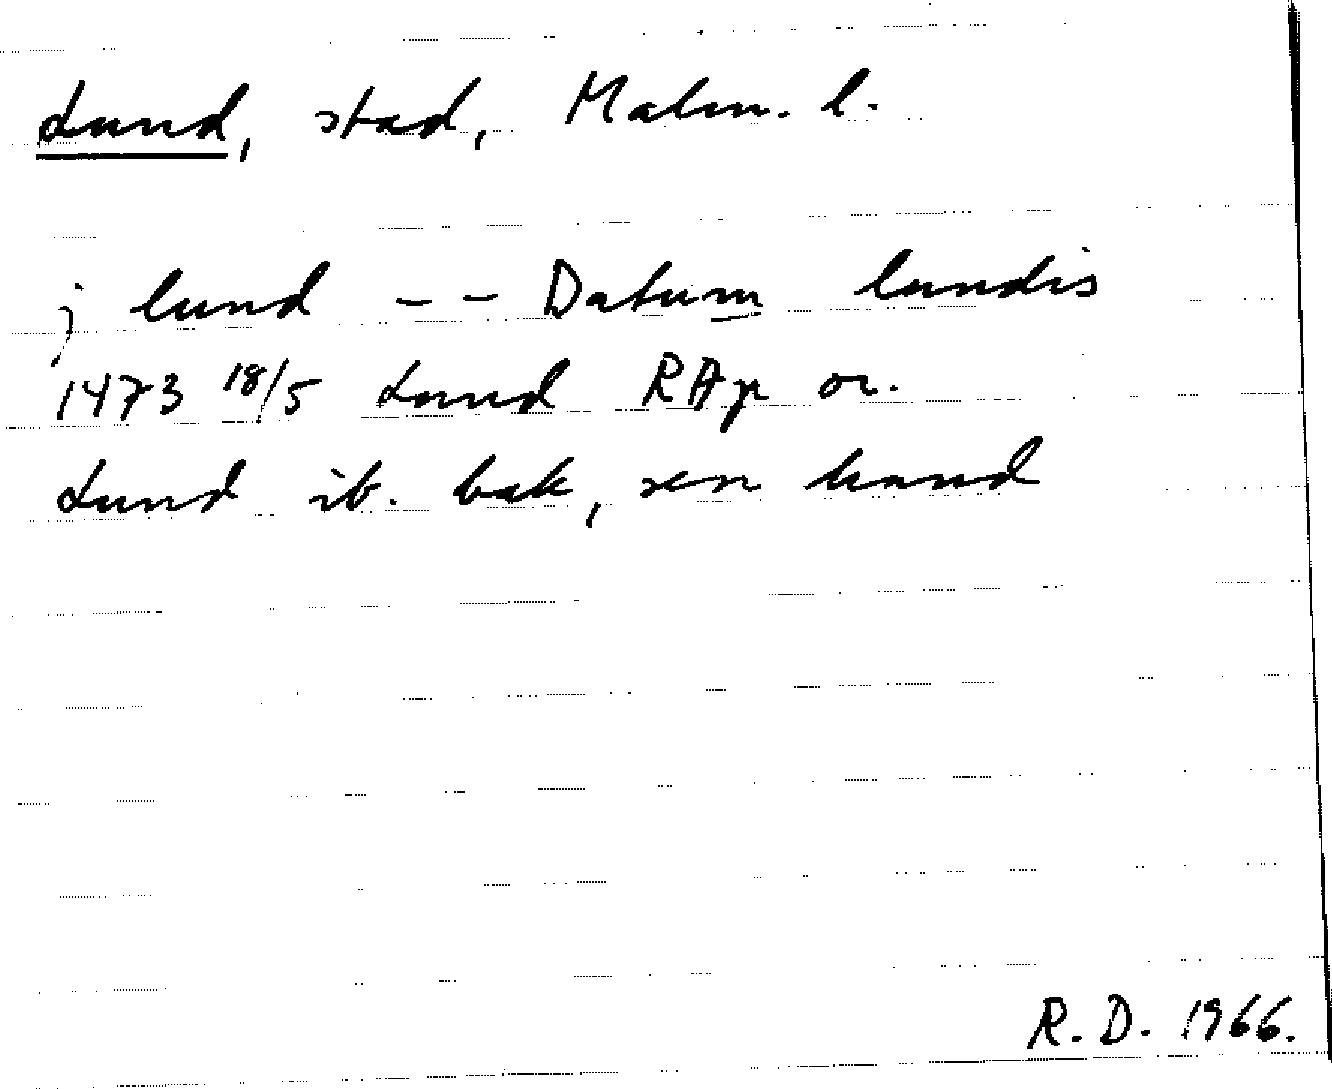 Lund, stad, Malm. l.
j lund -- Datum lundis
1473 18/5 Lund RAp or.
Lund ib. bak, sen hand
R.D. 1966.